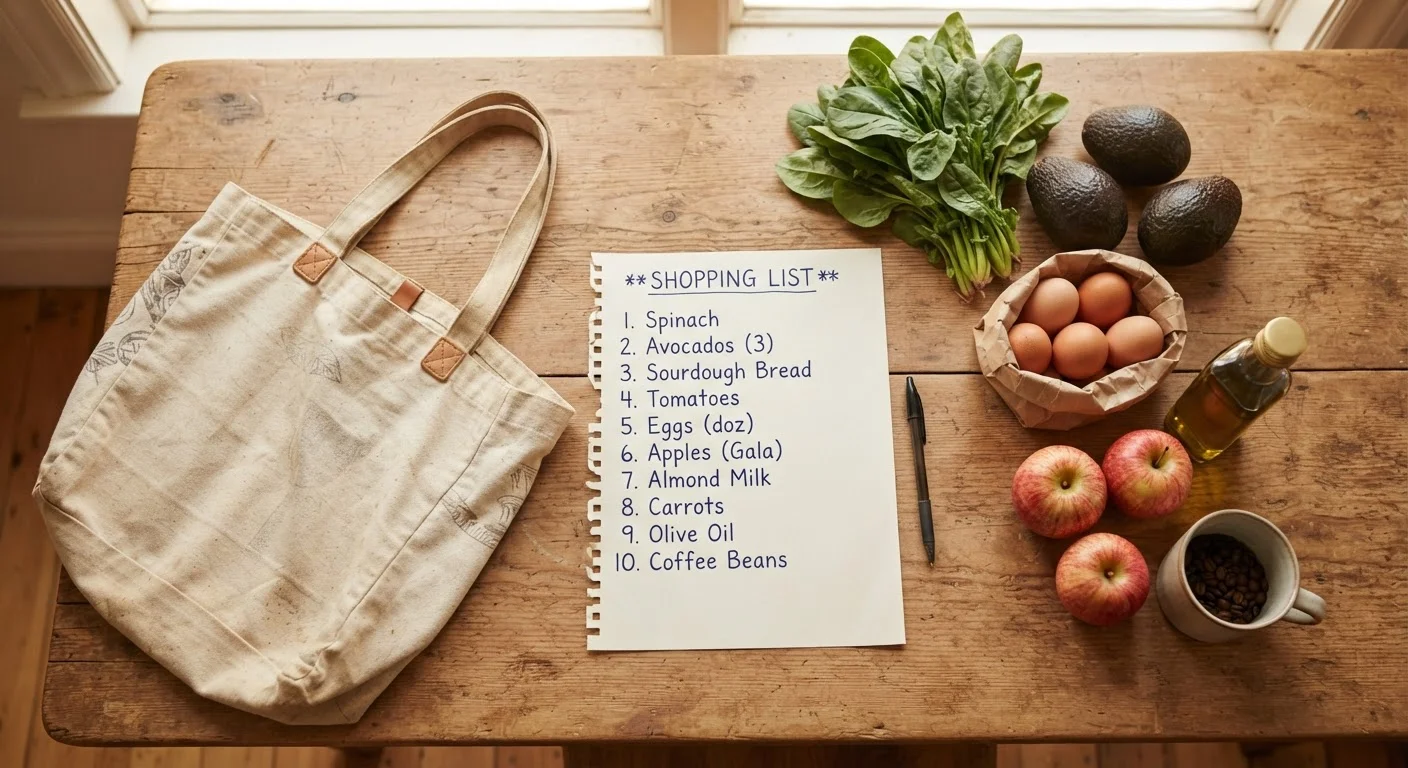 **SHOPPING LIST**
1. Spinach
2. Avocados (3)
3. Sourdough Bread
4. Tomatoes
5. Eggs (doz)
6. Apples (Gala)
7. Almond Milk
8. Carrots
9. Olive Oil
10. Coffee Beans